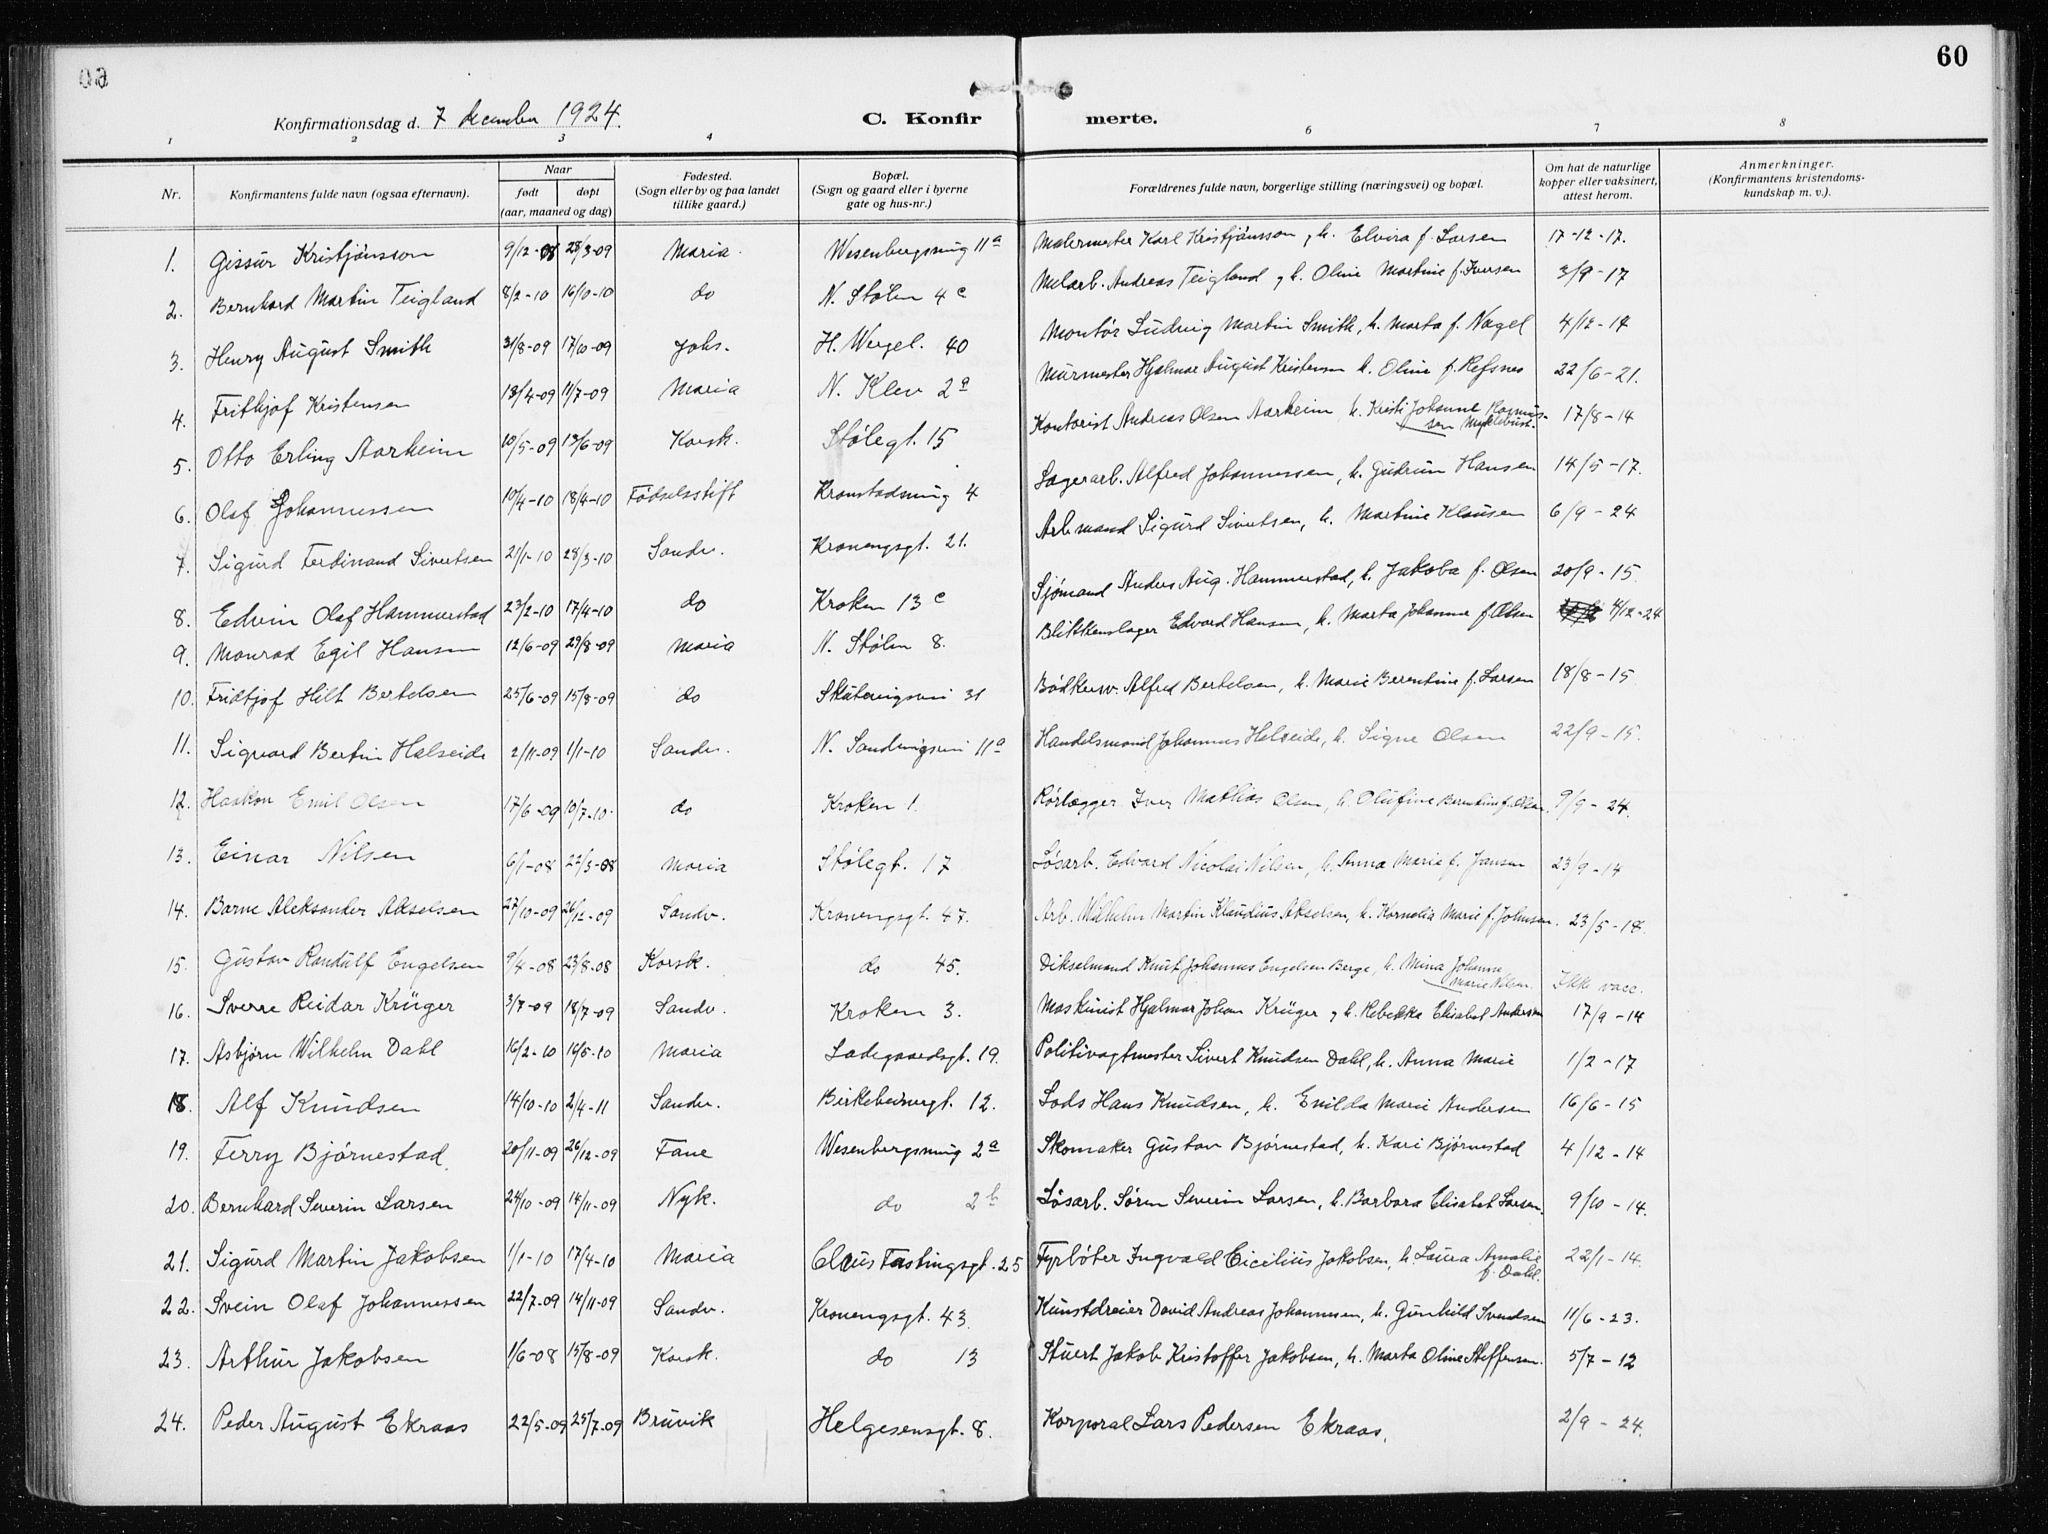 60
Konfirmationsdag d. 7 december 1924.
C. Konfirmerte.
1 2 3 4 6 7 8
Nr. Konfirmantens fulde navn (ogsaa efternavn). Naar født døpt (aar, maaned og dag) Fødested. (Sogn eller by og paa landet tillike gaard.) Bopæl. (Sogn og gaard eller i byerne gate og hus-nr.) Forældrenes fulde navn, borgerlige stilling (næringsvei) og bopæl. Om hat de naturlige kopper eller vaksinert, attest herom. Anmerkninger. (Konfirmantens kristendomskundskap m. v.).
1. Gissur Kristjánsson 9/12-08 28/3-09 Maria. Wesenbergsmug 11a Malermester Karl Kristjánsson, h. Elvira f. Larsen 17-12-17.
2. Bernhard Martin Teigland 8/2-10 16/10-10 do N. Stølen 4c Mularb. Andreas Teigland, h. Oline Martine f. Iversen 3/9-17
3. Henry August Smith 31/8-09 17/10-09 Johs. H. Wergel. 40 Montør Ludvig Martin Smith, h. Marta f. Nagel 4/12-17
4. Frithjof Kristensen 13/4-09 11/7-09 Maria N. Klev 2a Murmester Hjalmar August Kristensen h. Oline f. Refsnes 22/6-21.
5. Otto Erling Aarheim 10/5-09 13/6-09 Korsk. Stølegt. 15 Kontorist Andreas Olsen Aarheim h. Kristi Johanne Rasmussen Myklebust. 17/8-14
6. Olaf Johannessen 10/4-10 18/4-10 Fødselsstift Kronstadsmug 4 Lagerarb. Alfred Johannessen, h. Gudrun Hansen 14/5-17.
7. Sigurd Ferdinand Sivertsen 21/1-10 28/3-10 Sandv. Kronengsgt. 21. Arb.mand Sigurd Sivertsen, h. Martine Klausen 6/9-24
8. Edvin Olaf Hammerstad 23/2-10 17/4-10 do Kroken 13c Sjømand Anders Aug. Hammerstad, h. Jakoba f. Olsen 20/9-15.
9. Monrad Egil Hansen 12/6-09 29/8-09 Maria N. Stølen 8. Blikkenslager Edvard Hansen, h. Marta Johanne f. Olsen 4/12-24
10. Fridtjof Hilt Bertelsen 25/6-09 15/8-09 do Skuteviksvei 31 Bødkersv. Alfred Bertelsen, h. Marie Berentine f. Larsen 18/8-15
11. Sigvard Bertin Halseide 2/11-09 1/1-10 Sandv. N. Sandviksvei 11a Handelsmand Johannes Helseide, h. Signe Olsen 22/9-15.
12. Haakon Emil Olsen 17/6-09 10/7-10. do Kroken 1. Rørlægger Iver Mathias Olsen, h. Olufine Berntine f. Olsen. 9/9-24.
13. Einar Nilsen 6/1-08 22/3-08 Maria Stølegt. 17 Løsarb. Edvard Nicolai Nilsen, h. Anna Marie f. Jansen 23/9-14
14. Barne Aleksander Akselsen 27/10-09 26/12-09 Sandv. Kronengsgt. 47. Arb. Wilhelm Martin Klaudius Akselsen, h. Kornelia Marie f. Johnsen. 23/5-18.
15. Gustav Randulf Engelsen 9/4-08 23/8-08 Korsk. do 45. Dikselmand Knut Johannes Engelsen Berge, h. Mina Johanna Marie Nilsen. Ikke vacc.
16. Sverre Reidar Krüger 3/7-09 18/7-09 Sandv. Kroken 3. Maskinist Hjalmar Johan Krüger, h. Rebekka Elisabet Andersen 17/9-14
17. Asbjørn Wilhelm Dahl 16/2-10 16/5-10 Maria Ladegaardsgt. 19. Politivagtmester Sivert Knudsen Dahl, h. Anna Marie 1/2-17
18. Alf Knudsen 14/10-10 2/4-11 Sandv. Birkebeinergt. 12. Lods Hans Knudsen, h. Enilda Marie Andersen 16/6-15
19. Ferry Bjørnestad 20/11-09 26/12-09 Fane Wesenbergsmug 2a Skomaker Gustav Bjørnestad, h. Kari Bjørnestad 4/12-14
20. Bernhard Severin Larsen 24/10-09 14/11-09 Nyk. do 2b Løsarb. Søren Severin Larsen, h. Barbara Elisabet Larsen. 9/10-14.
21. Sigurd Martin Jakobsen 1/1-10 17/4-10 Maria Claus Fastingsgt. 25 Fyrbøter Ingvald Cicilius Jakobsen, h. Laura Amalie f. Dahl. 22/1-14.
22. Svein Olaf Johannessen 22/7-09 14/11-09 Sandv. Kronengsgt. 43. Kunstdreier David Andreas Johannesen, h. Gunhild Svendsen 11/6-23.
23. Arthur Jakobsen 1/6-08 15/8-09 Korsk. do 13 Stuert Jakob Kristoffer Jakobsen, h. Marta Oline Steffensen. 5/7-12
24. Peder August Ekraas 22/5-09 25/7-09 Bruvik Helgesensgt. 8. Korporal Lars Pedersen Ekraas. 2/9-24.